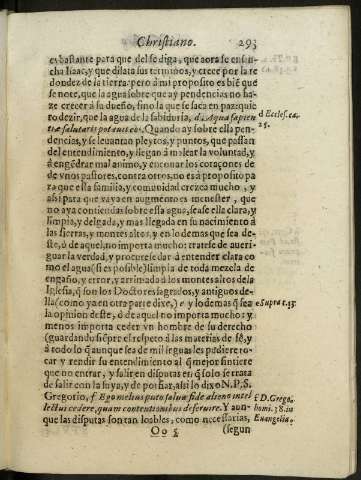 Christiano. 293
es bastante para que del se diga, que aora se ensan-
cha Isaac, y que dilata sus terminos, y crece por la re
dondez de la tierra: pero à mi proposito es bien que
se note, que la agua sobre que ay pendencias no ha-
ze crecer à su dueño, sino la que se saca en paz: quie
ro dezir, que la agua de la sabiduria, d. Aqua sapien
tiæ salutaris potauit eos. Quando ay sobre ella pen-
dencias, y se leuantan pleytos, y puntos, que passan
del entendimiento, y llegan à molear la voluntad, y
à engẽdrar mal animo, y enconar los coraçones de
de vnos pastores, contra otros, no es à proposito pa
ra que essa familia, y comunidad crezca mucho, y
assi para que vaya en augmento es menester, que
no aya contiendas sobre essa agua, sea se ella clara, y
limpia, y delgada, y mas llegada en su nacimiento à
las sierras, y montes altos, y en lo demas que sea de-
ste, ò de aquel, no importa mucho: tratese de aueri-
guar la verdad, y procurese dar à entender clara co
mo el agua (si es posible) limpia de toda mezcla de
engaño, y error, y arrimada à los montes altos de la
Iglesia, q̃ son los Doctores sagrados, y antiguos de-
lla (como ya en otra parte dixe,) e y lo demas q̃ sea
la opinion deste, ò de aquel no importa mucho: y
menos importa ceder vn hombre de su derecho
(guardando siẽpre el respeto à las materias de fè, y
à todo lo q̃ aunque sea de mil leguas les pudiere to-
car y rendir su entendimiento al q̃ mejor sintiere
que no entrar, y salir en disputas en q̃ solo se trata
de salir con la suya, y de porfiar, assi lo dixo N.P.S.
Gregorio, f Ego melius puto salua fide alieno intel
lectui cedere, quam contentionibus deseruire. Y aun-
que las disputas son tan loables, como necessarias,
Oo 5 (segun
d Eccles. ca.
25.
e Supra t. 13.
f D. Grego.
homi. 38. in
Euangelia.